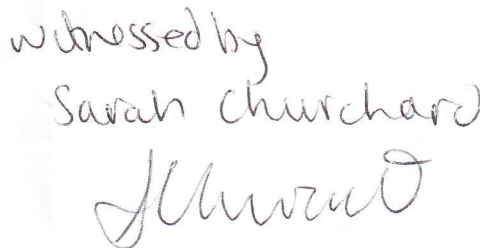 witnessed by
Sarah Churchard